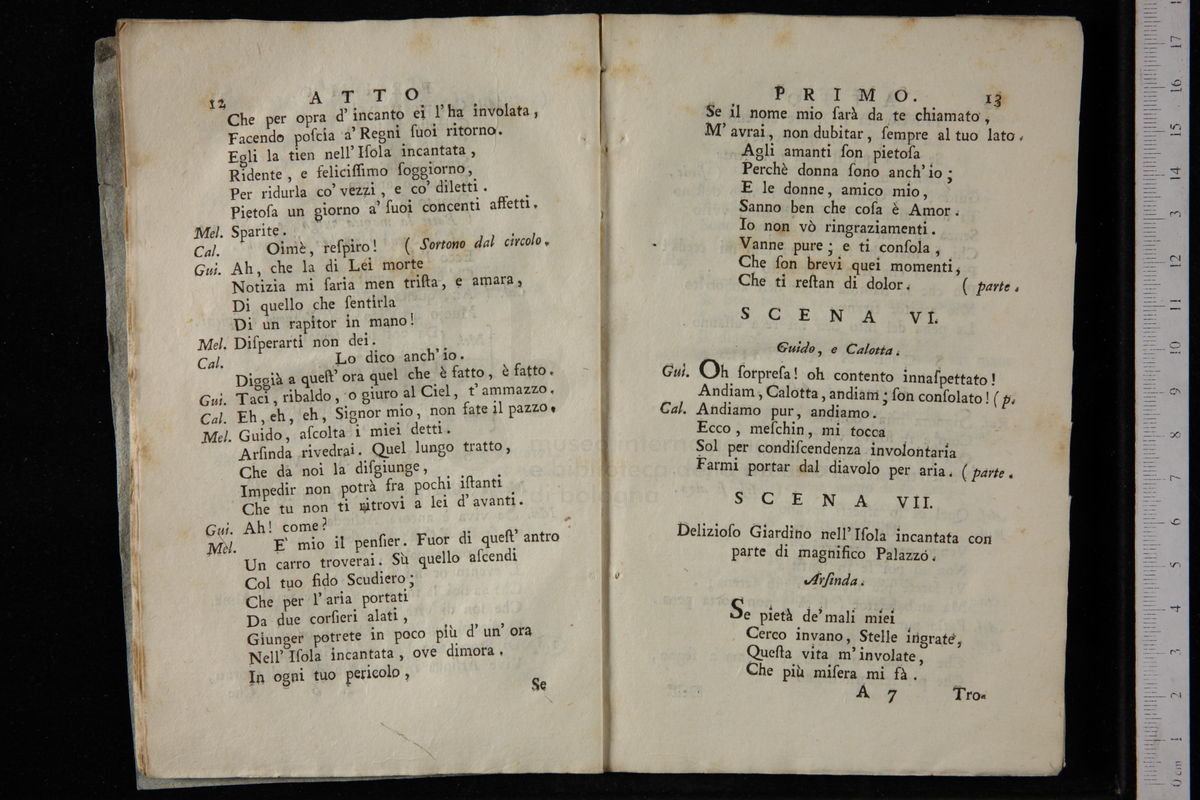 12 ATTO
Che per opra d'incanto ei l'ha involata,
Facendo poſcia a' Regni ſuoi ritorno.
Egli la tien nell'Iſola incantata,
Ridente, e feliciſſimo ſoggiorno,
Per ridurla co' vezzi, e co' diletti.
Pietoſa un giorno a' ſuoi concenti affetti.
Mel. Sparite.
Cal. Oimè, reſpiro! ( Sortono dal circolo.
Gui. Ah, che la di Lei morte
Notizia mi ſaria men triſta, e amara,
Di quello che ſentirla
Di un rapitor in mano!
Mel. Diſperarti non dei.
Cal. Lo dico anch'io.
Diggià a queſt' ora quel che è fatto, è fatto.
Gui. Taci, ribaldo, o giuro al Ciel, t'ammazzo.
Cal. Eh, eh, eh, Signor mio, non fate il pazzo.
Mel. Guido, aſcolta i miei detti.
Arſinda rivedrai. Quel lungo tratto,
Che da noi la diſgiunge,
Impedir non potrà fra pochi iſtanti
Che tu non ti ritrovi a lei d'avanti.
Gui. Ah! come?
Mel. E' mio il penſier. Fuor di queſt' antro
Un carro troverai. Sù quello aſcendi
Col tuo fido Scudiero;
Che per l'aria portati
Da due corſieri alati,
Giunger potrete in poco più d'un' ora
Nell'Iſola incantata, ove dimora.
In ogni tuo pericolo,
Se
PRIMO. 13
Se il nome mio ſarà da te chiamato,
M'avrai, non dubitar, ſempre al tuo lato.
Agli amanti ſon pietoſa
Perchè donna ſono anch'io;
E le donne, amico mio,
Sanno ben che coſa è Amor.
Io non vò ringraziamenti.
Vanne pure; e ti conſola,
Che ſon brevi quei momenti,
Che ti reſtan di dolor. ( parte.
SCENA VI.
Guido, e Calotta.
Gui. Oh ſorpreſa! oh contento innaſpettato!
Andiam, Calotta, andiam; ſon conſolato! ( p.
Cal. Andiamo pur, andiamo.
Ecco, meſchin, mi tocca
Sol per condiſcendenza involontaria
Farmi portar dal diavolo per aria. ( parte.
SCENA VII.
Delizioſo Giardino nell'Iſola incantata con
parte di magnifico Palazzo.
Arſinda.
Se pietà de' mali miei
Cerco invano, Stelle ingrate,
Queſta vita m'involate,
Che più miſera mi fà.
A 7 Tro-
museo interna
e biblioteca d
di bologna
0 cm 1 2 3 4 5 6 7 8 9 10 11 12 13 14 15 16 17